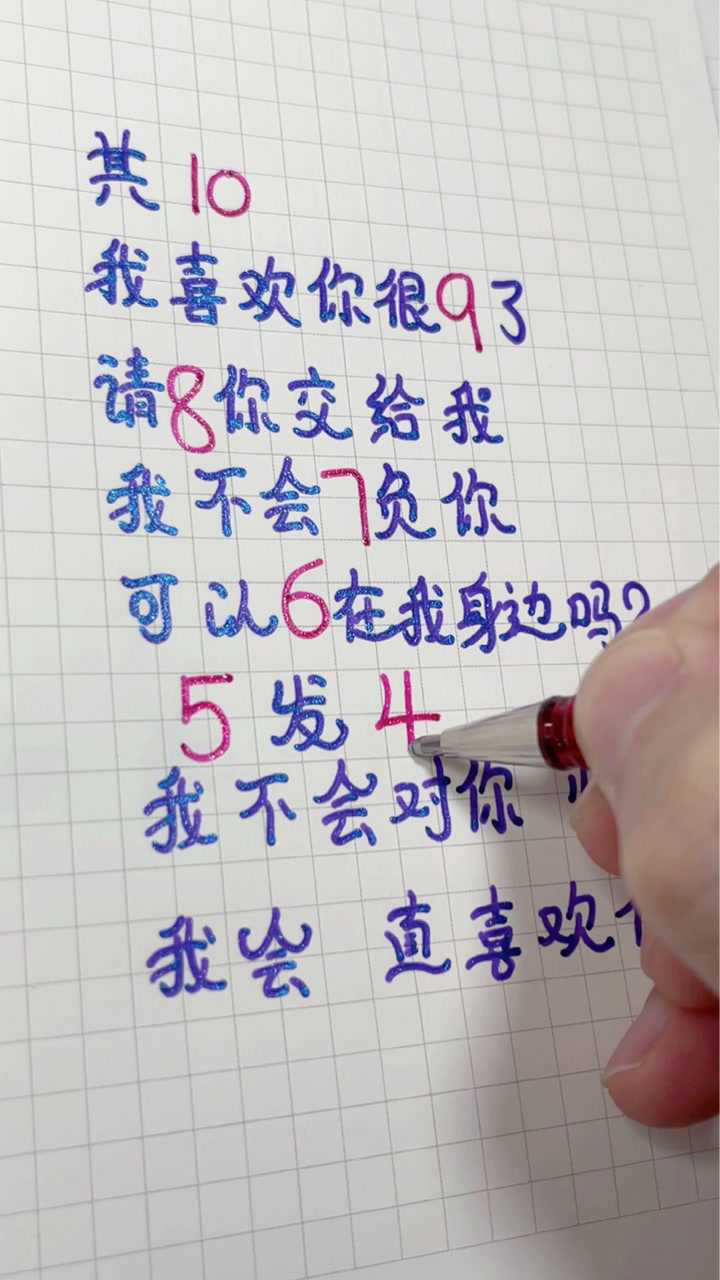 共10
我喜欢你很9了
请8你交给我
我不会7负你
可以6在我身边吗?
5发4
我不会对你
我会 直喜欢